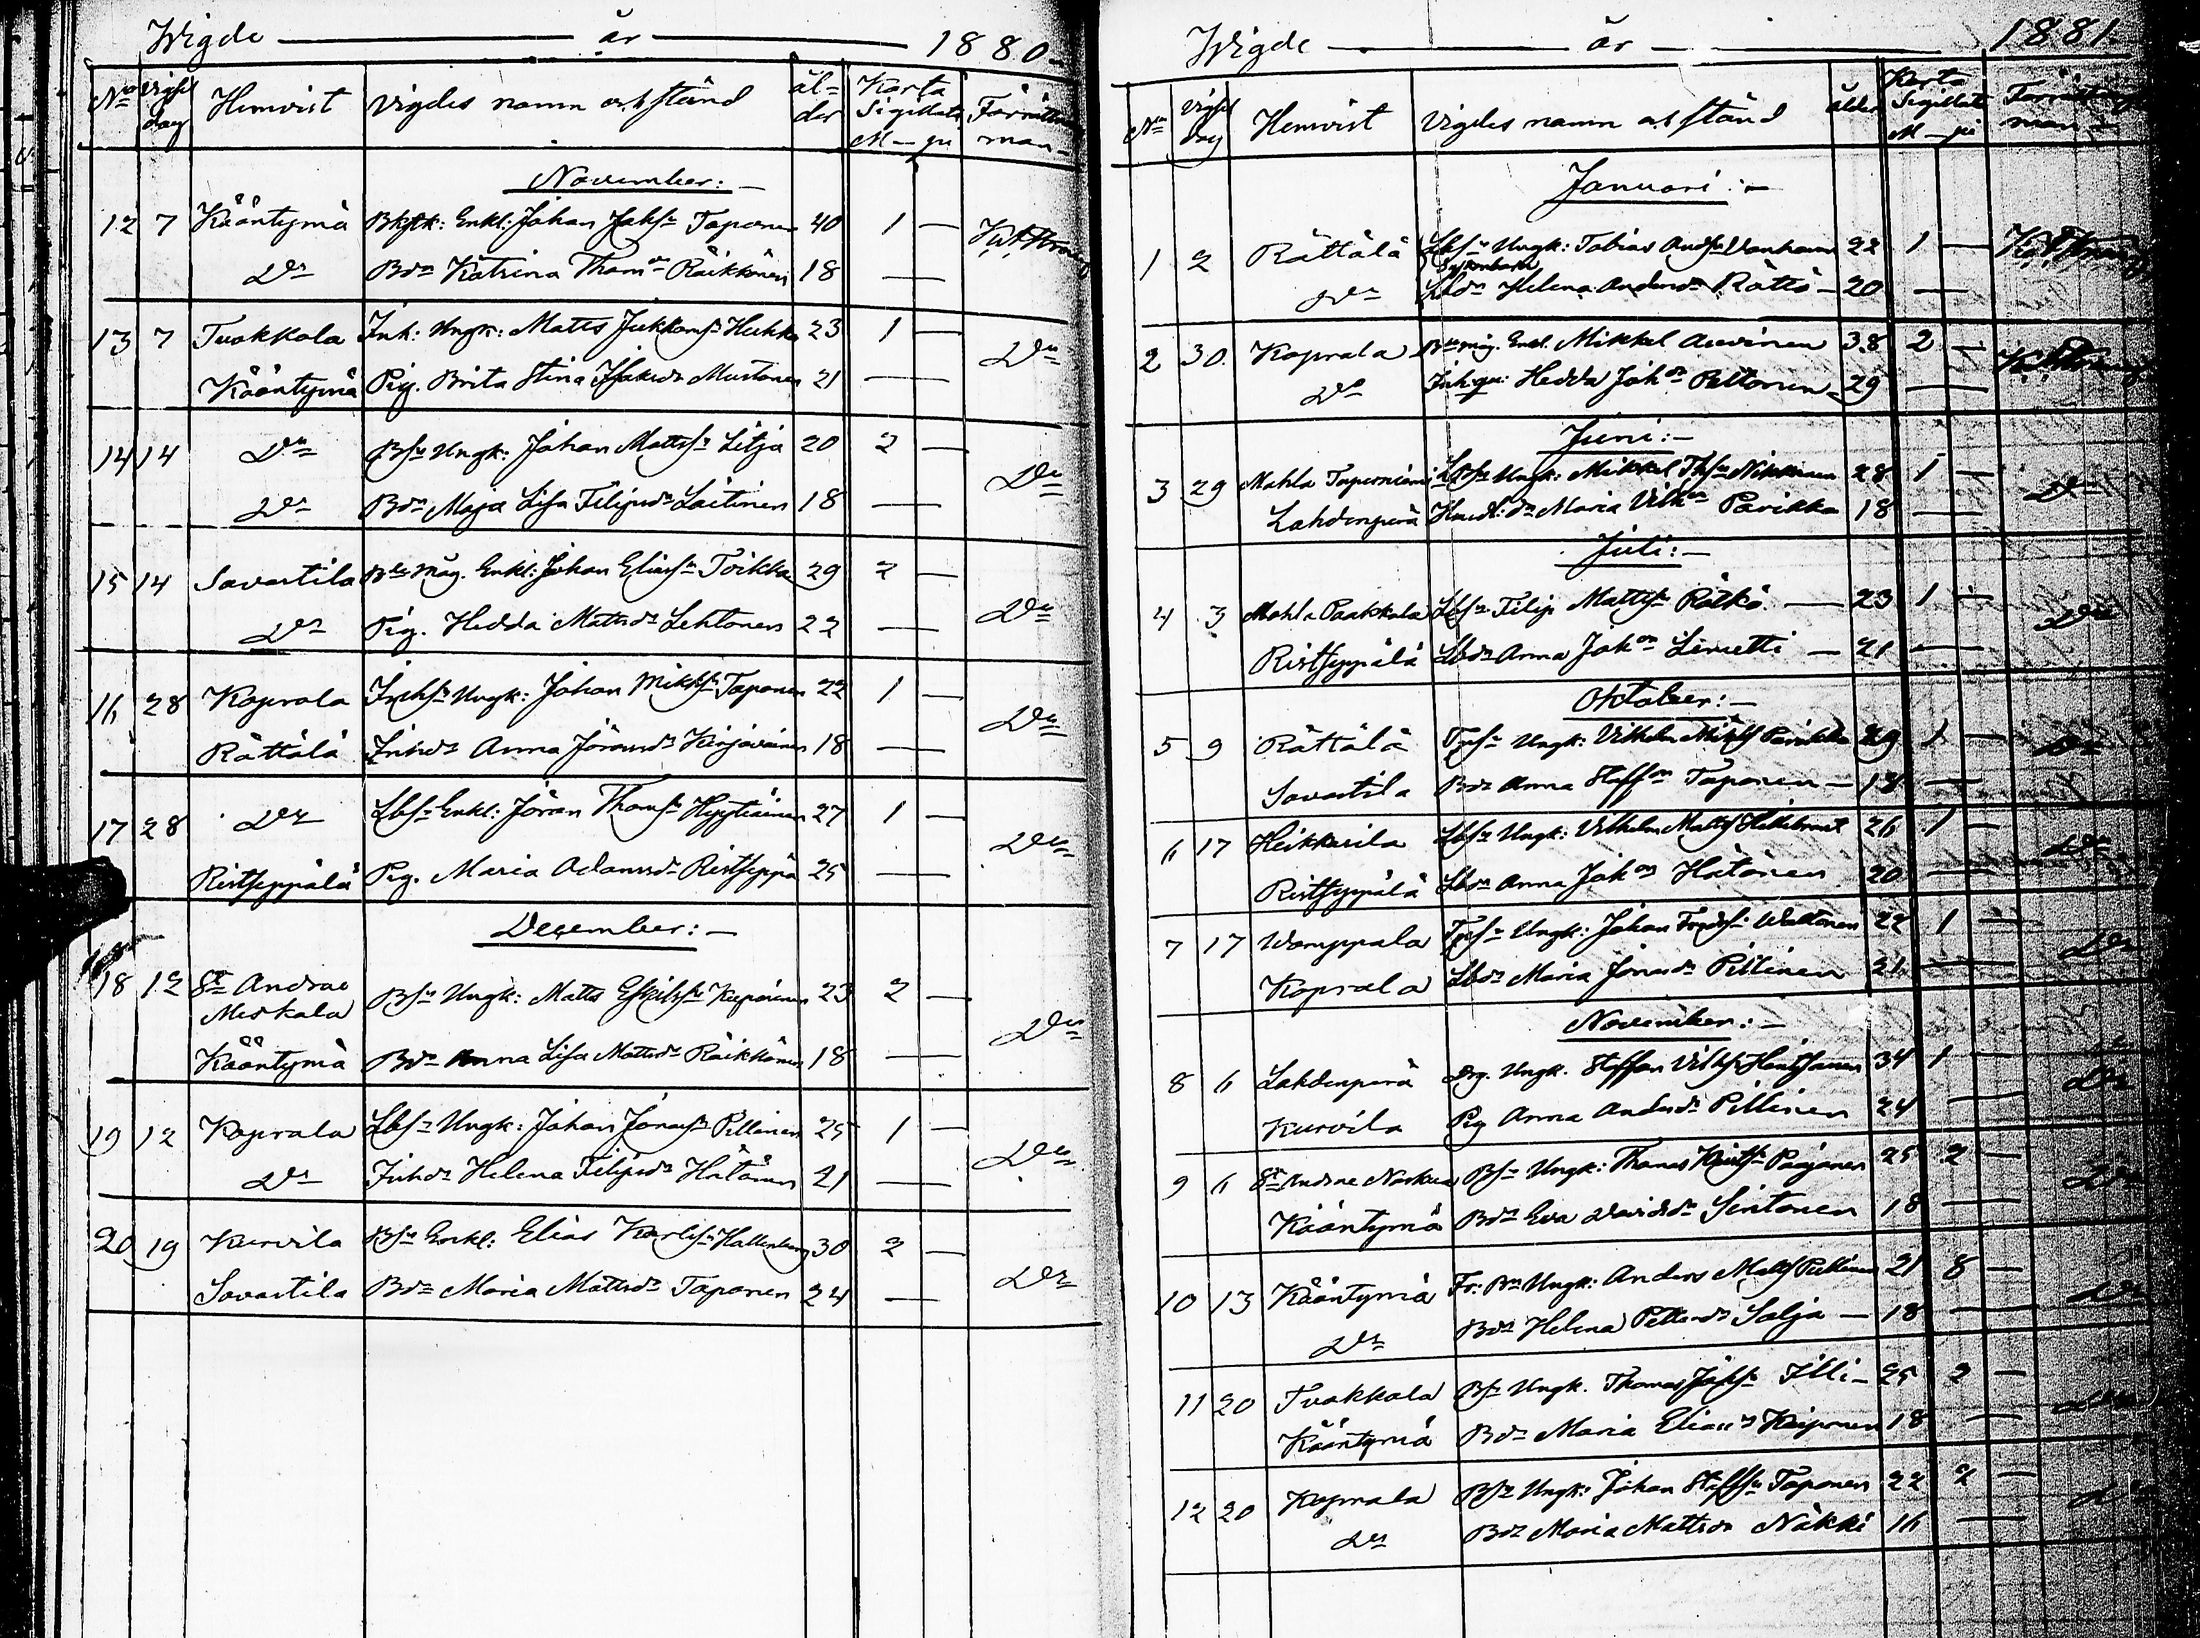 Wigde år 1880
No Vigsel dag Hemvist Vigdes namn och stånd ålder Karta Sigillata M — pi Förrättningsman
November:
12 7 Kääntymä Enkl: Johan Taponen 40 1 —
Do Bdr Katrina Räikkönen 18 —
13 7 Tuokkola Inh: Ungk: Matts Huhka 23 1 — Do
Kääntymä Pig. Brita Stina Mustonen 21 —
14 14 Do Bsn Ungk: Johan Mattsn Litja 20 2 — Do
Do Bdr Maja Lisa Filipsdr Laitinen 18 —
15 14 Savastila Bde måg. Enkl: Johan Eliassn Toikka 29 2 — Do
Do Pig. Hedda Mattsdr Lehtonen 22 —
16 28 Koprala Inhsn Ungk: Johan Mikksn Taponen 22 1 — Do
Rättälä Inhdr Anna Göransdr Kirjavainen 18 —
17 28 Do Lbsn Enkl: Jöran Thomsn Hyytiäinen 27 1 — Do
Ristseppälä Pig. Maria Adamsdr Ristseppä 25 —
December:
18 12 St Andrae Bsn Ungk: Matts Eskilssn 23 2 — Do
Meskala
Kääntymä Bdr Anna Lisa Mattsdr Räikkönen 18 —
19 12 Koprala Lbsn Ungk: Johan Jonassn Pillinen 25 1 — Do
Do Inhdr Helena Filipsdr Hätönen 21 —
20 19 Kurvila Bsn Enkl: Elias Karlssn Hallenberg 30 2 — Do
Savastila Bdr Maria Mattsdr Taponen 24 —
Wigde år 1881
No Vigsel dag Hemvist Vigdes namn och stånd ålder Karta Sigillata M — pi Förrättningsman
Januari:
1 2 Rättälä Lbsn Ungk: Tobias Andsn Vanhanen 22 1 —
Do Lbdr Helena Andersdr Rättö — 20 —
2 30 Koprala Bde måg. Enkl. Mikkel Auvinen 38 2 —
Do Inh. pi: Hedda Johdr Peltonen 29 —
Juni:
3 29 Mahla Taperniemi Lbsn Ungk: Mikkel Nikkinen 28 1 — Do
Lahdenperä Maria Vilhdr Parikka 18 —
Juli:
4 3 Mahla Paakkola Lbsn Filip Mattsn Rätkö — 23 1 — Do
Ristseppälä Lbdr Anna Johdr Limetti — 21 —
Oktober:
5 9 Rättälä Tpsn Ungk: Vilhelm Parikka 29 1 — Do
Savastila Bdr Anna Staffdr Taponen — 18 —
6 17 Heikkurila Lbsn Ungk: Vilhelm Mattss 26 1 — Do
Ristseppälä Lbdr Anna Johdr Hätönen 20 —
7 17 Wamppala Tpsn Ungk: Johan Fredsn Waltonen 22 1 — Do
Koprala Lbdr Maria Jonasdr Pillinen —
November:
8 6 Lahdenperä Drg. Ungk. Staffan 34 1 — Do
Kurvila Pig Anna Andersdr Pillinen 24 —
9 6 St Andrae Bsn Ungk: Thomas Paajanen 25 2 — Do
Kääntymä Bdr Eva Davidsdr Sintonen 18 —
10 13 Kääntymä Ungk: Anders Matts Pillinen 21 8 — Do
Do Bdr Helena Pettersdr Salja — 18 —
11 20 Tuokkola Bsn Ungk. Thomas Illi — 25 2 — Do
Kääntymä Bdr Maria Eliasdr Kaiponen 18 —
12 20 Koprala Bsn Ungk: Johan Staffsn Taponen 22 2 — Do
Do Bdr Maria Mattsdr Näkki 16 —